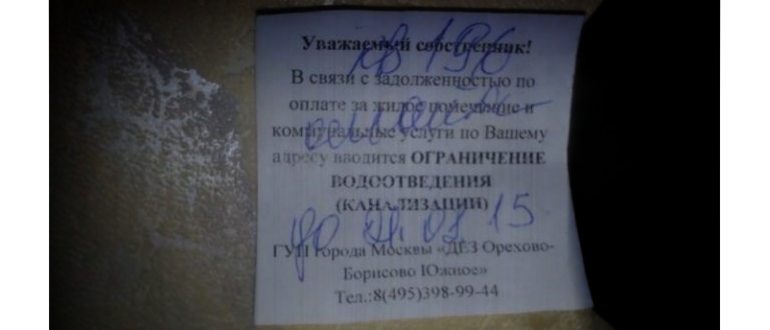 Уважаемый собственник!
кв 196
В связи с задолженностью по
оплате за жилое помещение и
коммунальные услуги по Вашему
адресу вводится ОГРАНИЧЕНИЕ
ВОДООТВЕДЕНИЯ
(КАНАЛИЗАЦИИ)
до 03.15
ГУП города Москвы «ДЕЗ Орехово-
Борисово Южное»
Тел.:8(495)398-99-44